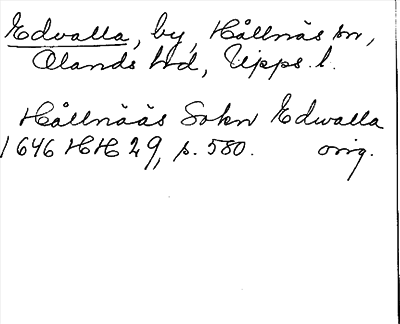 Edvalla, by, Hållnäs sn,
Olands hd, Upps. l.
Hållnääs Sokn Edwalla
1646 HH 29, s. 580. orig.